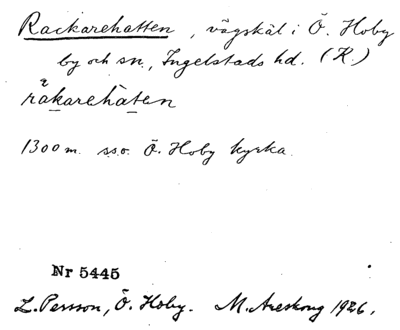 Rackarehatten, vägskäl i Ö. Hoby
by och sn., Ingelstads hd. (K.)
räkarehàten
1300 m. s.s.o. Ö. Hoby kyrka.
Nr 5445
L. Persson, Ö. Hoby. M. Areskoug 1926.